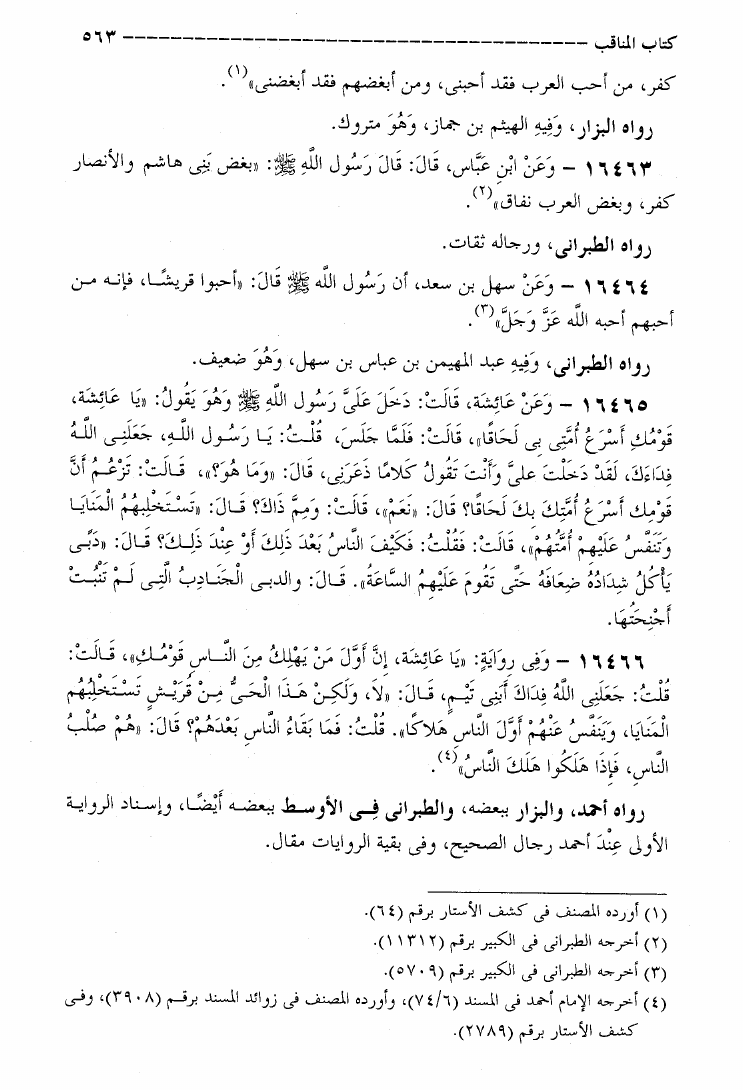 كتاب المناقب ------------------------------------ ٥٦٣
كفر، من أحب العرب فقد أحبنى، ومن أبغضهم فقد أبغضنى»(١).
رواه البزار، وَفِيهِ الهيثم بن جماز، وَهُوَ متروك.
١٦٤٦٣ – وَعَنْ ابْنِ عَبَّاس، قَالَ: قَالَ رَسُول اللَّهِ ﷺ: «بغض بَنِى هاشم والأنصار
كفر، وبغض العرب نفاق»(٢).
رواه الطبرانى، ورجاله ثقات.
١٦٤٦٤ – وَعَنْ سهل بن سعد، أن رَسُول الله ﷺ قَالَ: «أحبوا قريشًا، فإنه من
أحبهم أحبه اللَّه عَزَّ وَجَلَّ»(٣).
رواه الطبرانى، وَفِيهِ عبد المهيمن بن عباس بن سهل، وَهُوَ ضعيف.
١٦٤٦٥ – وَعَنْ عَائِشَة، قَالَتْ: دَخَلَ عَلَىَّ رَسُول اللَّهِ ﷺ وَهُوَ يَقُولُ: «يَا عَائِشَة،
قَوْمُكِ أَسْرَعُ أُمَّتِى بِى لَحَاقًا»، قَالَتْ: فَلَمَّا جَلَسَ، قُلْتُ: يَا رَسُول اللهِ، جَعَلَنِى اللهُ
فِدَاءَكَ، لَقَدْ دَخَلْتَ علىَّ وَأَنْتَ تَقُولُ كَلامًا ذَعَرَنِى، قال: «وَمَا هُوَ؟»، قَالَتْ: تَزْعُمُ أَنَّ
قَوْمِك أَسْرَعُ أُمَّتِكَ بِكَ لَحَاقًا؟ قَالَ: «نَعَمْ»، قَالَتْ: وَمِمَّ ذَاكَ؟ قَالَ: «تَسْتَحْلِيهُمُ الْمَنَايَا
وَتَنَفَّسُ عَلَيْهِمْ أُمَّتُهُمْ»، قَالَتْ: فَقُلْتُ: فَكَيْفَ النَّاسُ بَعْدَ ذَلِكَ أَوْ عِنْدَ ذَلِكَ؟ قَالَ: «دَبًى
يَأْكُلُ شِدَادُهُ ضِعَافَهُ حَتَّى تَقُومَ عَلَيْهِمُ السَّاعَةُ». قَالَ: والدبى الْجَنَادِبُ الَّتِى لَمْ تَنْبُتْ
أَجْنِحَتُهَا.
١٦٤٦٦ – وَفِى رِوَايَةٍ: «يَا عَائِشَة، إِنَّ أَوَّلَ مَنْ يَهْلِكُ مِنَ النَّاسِ قَوْمُكِ»، قَالَتْ:
قُلْتُ: جَعَلَنِى اللَّهُ فِدَاكَ أَبَنِى تَيْمٍ، قَالَ: «لاَ، وَلَكِنْ هَذَا الْحَىُّ مِنْ قُرَيْشٍ تَسْتَحْلِيهُمُ
الْمَنَايَا، وَيَنَفَّسُ عَنْهُمْ أَوَّلَ النَّاسِ هَلاكًا». قُلْتُ: فَمَا بَقَاءُ النَّاسِ بَعْدَهُمْ؟ قَالَ: «هُمْ صُلْبُ
النَّاسِ، فَإِذَا هَلَكُوا هَلَكَ النَّاسُ»(٤).
رواه أحمد، والبزار ببعضه، والطبرانى فى الأوسط ببعضه أَيْضًا، وإسناد الرواية
الأولى عِنْدَ أحمد رجال الصحيح، وفى بقية الروايات مقال.
(١) أورده المصنف فى كشف الأستار برقم (٦٤).
(٢) أخرجه الطبرانى فى الكبير برقم (١١٣١٢).
(٣) أخرجه الطبرانى فى الكبير برقم (٥٧٠٩).
(٤) أخرجه الإمام أحمد فى المسند (٧٤/٦)، وأورده المصنف فى زوائد المسند برقم (٣٩٠٨)، وفى
كشف الأستار برقم (٢٧٨٩).